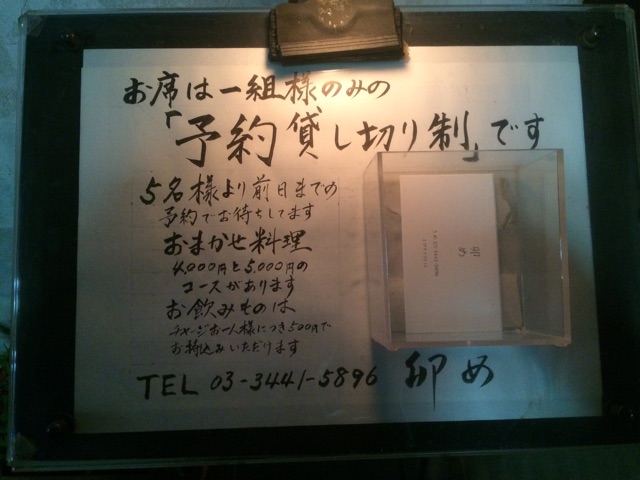 お席は一組様のみの
「予約貸し切り制」です
5名様より前日までの
予約でお待ちしてます
おまかせ料理
4,000円と5,000円の
コースがあります
お飲みものは
チャージお一人様につき500円で
お持込みいただけます
TEL 03-3441-5896